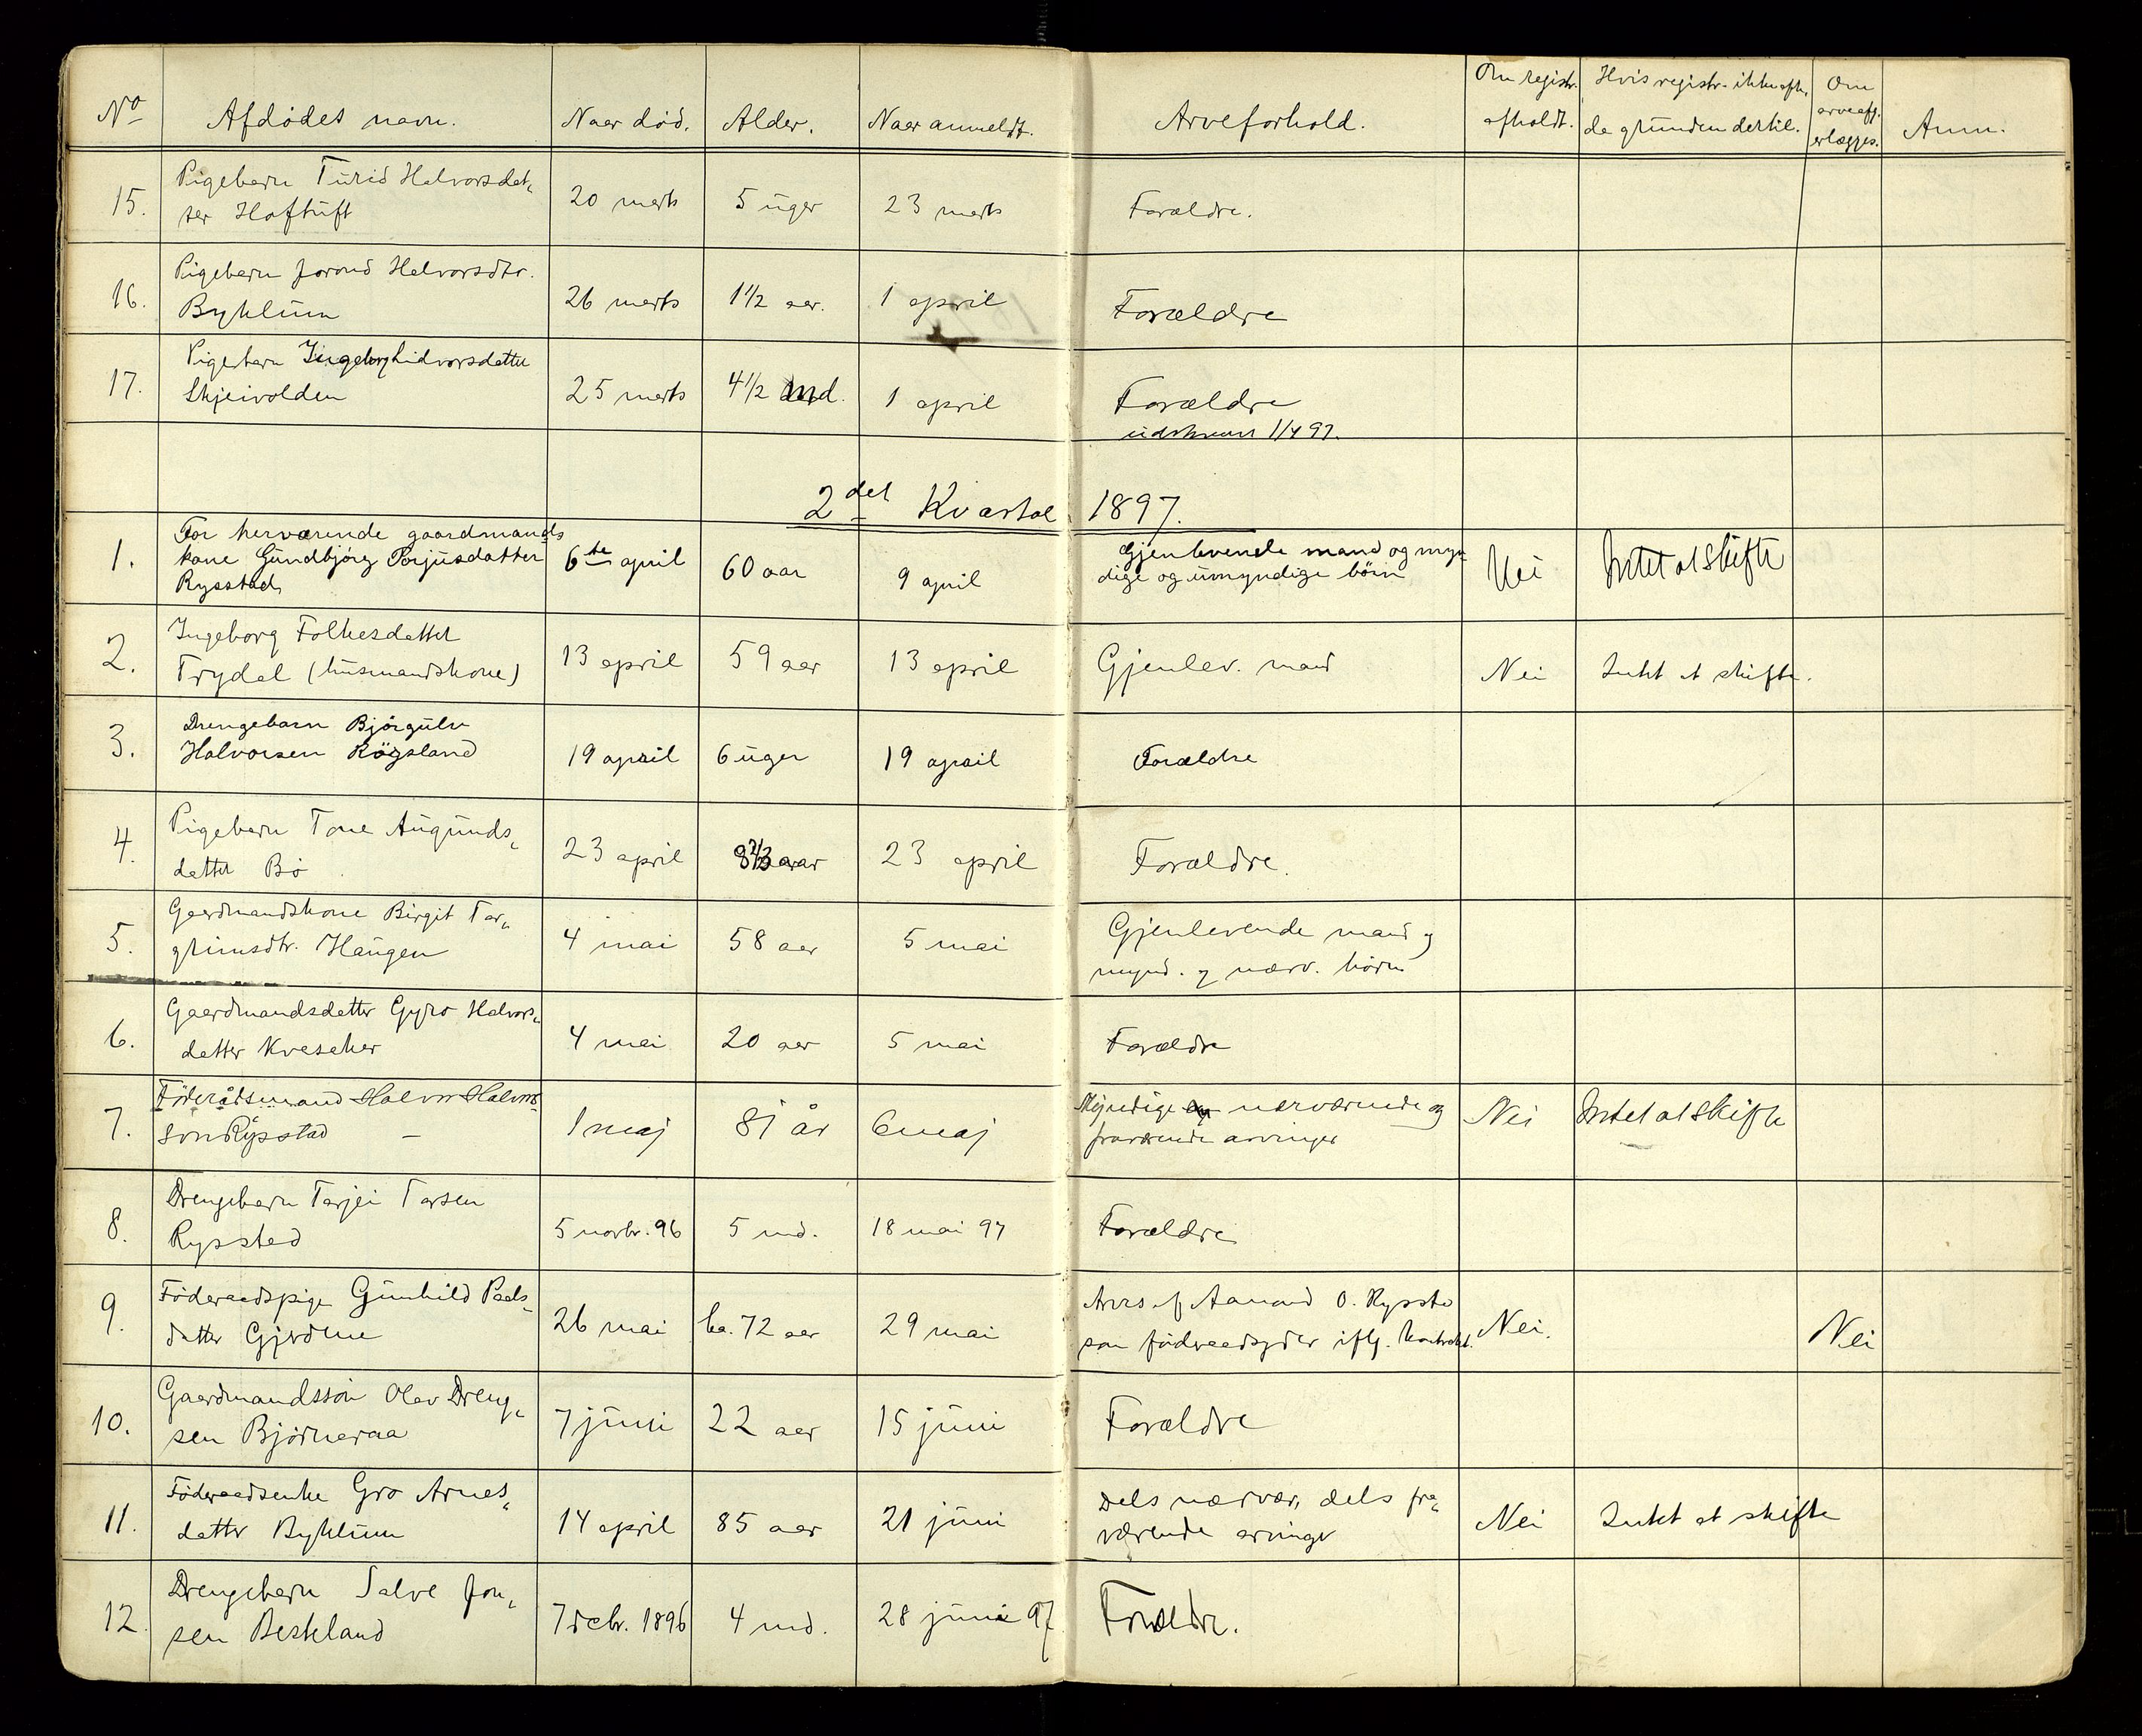 No Afdødes navn. Naar død. Alder. Naar anmeldt. Arveforhold. Om registr. afholdt. Hvis registr. ikke afh., da grunden dertil. Om arveafg. erlægges. Anm.
15. Pigebarn Turid Halvorsdat„ 20 marts 5 uger 23 marts Forældre.
ter Hoftuft
16. Pigebarn Jorond Halvorsdtr. 26 marts 1½ aar. 1 april Forældre
Byklum
17. Pigebarn Ingeborg Lidvorsdatter 25 marts 4½ md. 1 april Forældre
Skjeivolden
udskrevet 1/4 97.
2det Kvartal 1897.
1. For herværende gaardmands 6te april 60 aar 9 april Gjenlevende mand og myn Nei Intet at skifte
kone Gundbjørg Torjusdatter dige og umyndige börn
Rysstad
2. Ingeborg Folkesdatter 13 april 59 aar 13 april Gjenlev. mand Nei Intet at skifte.
Trydal (husmandskone)
3. Drengebarn Bjørgulv 19 april 6 uger 19 april Forældre
Halvorsen Rögsland
4. Pigebarn Tone Augunds„ 23 april 8⅔ aar 23 april Forældre.
datter Bø
5. Gaardmandskone Birgit Tar„ 4 mai 58 aar 5 mai Gjenlevende mand og
grimsdtr. Haugen mynd. og nærv. børn
6. Gaardmandsdatter Gyro Halvors„ 4 mai 20 aar 5 mai Forældre
datter Kveseker
7. Föderådsmand Halvor Halvors 1 maj 81 år 6 maj Myndige nærværende og Nei Intet at skifte
son Rysstad – fraværende arvinger
8. Drengebarn Tarjei Tarsen 5 novbr. 96 5 md. 18 mai 97 Forældre
Rysstad
9. Föderaadspige Gunhild Paals- 26 mai ca. 72 aar 29 mai Arves af Aamund O. Rysstad Nei. Nei
datter Gjerdene som föderaadsyder iflg. kontrakt.
10. Gaardmandssøn Olav Dreng„ 7 juni 22 aar 15 juni Forældre
sen Bjørneraa
11. Föderaadsenke Gro Arnes„ 14 april 85 aar 21 juni Dels nærvær., dels fra„ Nei Intet at skifte
datter Byklum værende arvinger
12. Drengebarn Salve Jon„ 7 decbr. 1896 4 md. 28 juni 97 Forældre.
sen Besteland